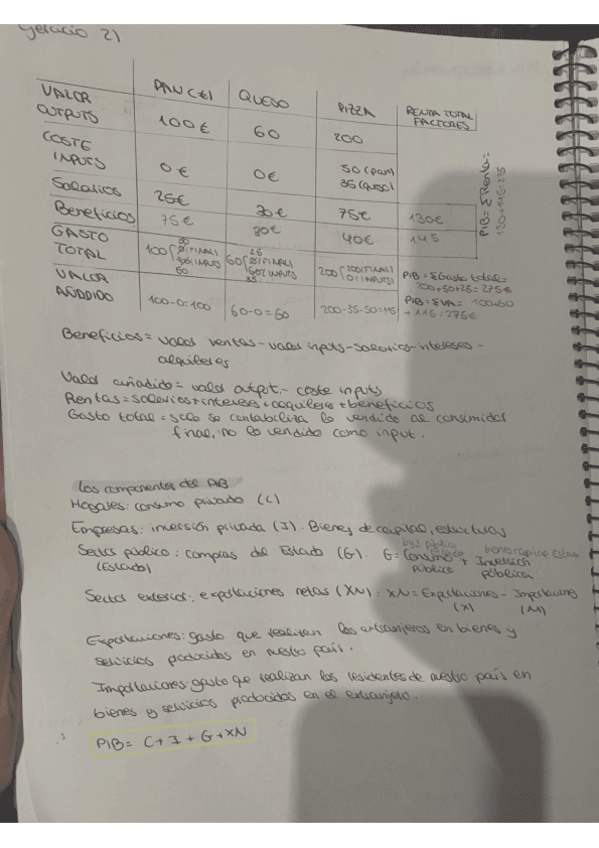 Ejercicio 2)
PAN (I) QUESO PIZZA RENTA TOTAL FACTORES
VALOR OUTPUTS 100€ 60 200
COSTE INPUTS 0€ 0€ 50 (pan) 35 (queso)
Salarios 25€ 30€ 75€ 130€
Beneficios 75€ 30€ 40€ 145
GASTO TOTAL 100 50 (FINAL) INPUTS 50 60 25 (FINAL) INPUTS 35 200 200 (FINAL) 0 (INPUTS) PIB = ΣGasto total = 200+50+25 = 275€
VALOR AÑADIDO 100-0=100 60-0=60 200-35-50=115 PIB = ΣVA = 100+60 + 115 = 275€
PIB = ΣRenta =
130+145=275
Beneficios = valor ventas - valor inputs - salarios - intereses -
alquileres
Valor añadido = valor output - coste inputs
Rentas = salarios + intereses + alquileres + beneficios
Gasto total = solo se contabiliza lo vendido al consumidor
final, no lo vendido como input.
Los componentes del PIB
Hogares: consumo privado (C)
Empresas: inversión privada (I). Bienes de capital, estructuras
Sector público: compras del Estado (G). G = Consumo público + Inversión pública
(Estado)
Sector exterior: exportaciones netas (XN): XN = Exportaciones - Importaciones
(X) (M)
Exportaciones: gasto que realizan los extranjeros en bienes y
servicios producidos en nuestro país.
Importaciones: gasto que realizan los residentes de nuestro país en
bienes y servicios producidos en el extranjero.
PIB = C + I + G + XN